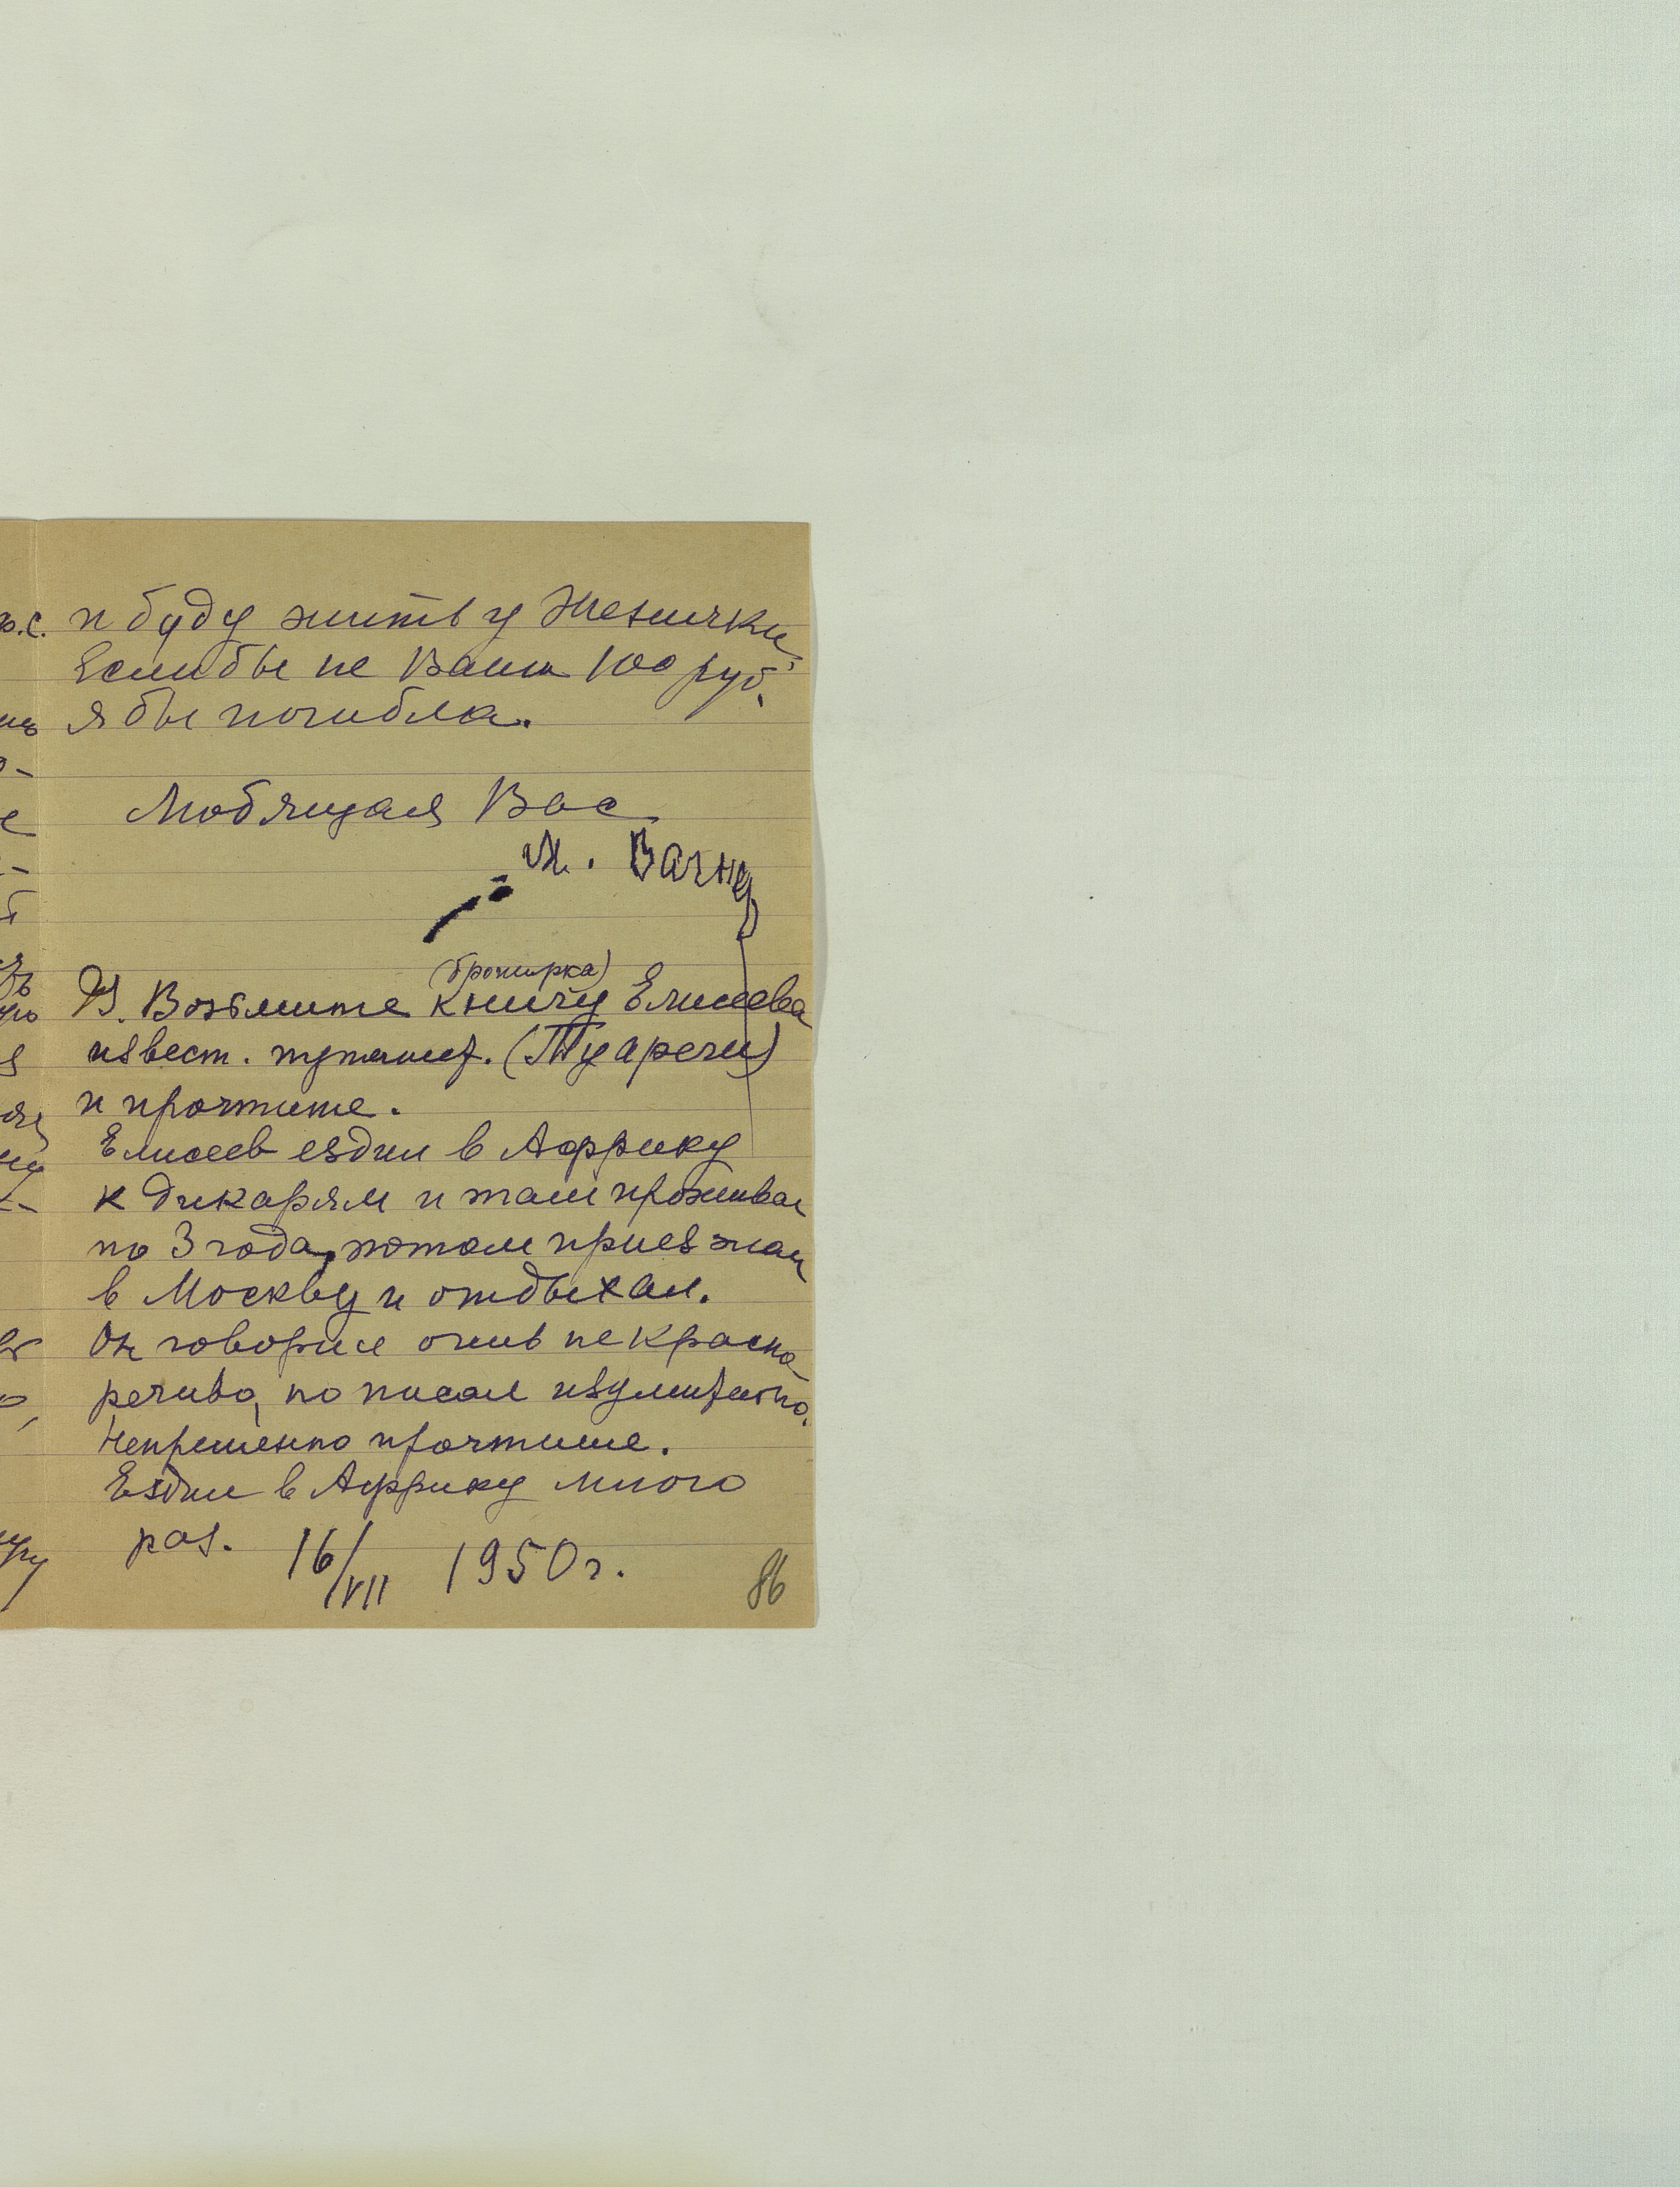 и буду жить у Женички.
Если бы не Ваши 100 руб.,
я бы погибла.
Любящая Вас
Вагнер
(брошюрка)
Возьмите книгу Елисеева
извест. путешест. (Туареги)
и прочтите.
Елисеев ездил в Аффрику
к дикарям и там проживал
по 3 года, потом приезжал
в Москву и отдыхал.
Он говорил очень не красно
речиво, но писал изумительно.
Непременно прочтите.
Ездил в Аффрику много
раз. 16/VII 1950 г.
86